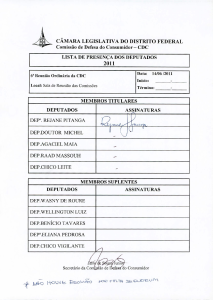 CÂMARA LEGISLATIVA DO DISTRITO FEDERAL
Comissão de Defesa do Consumidor – CDC
LISTA DE PRESENÇA DOS DEPUTADOS
2011
6ª Reunião Ordinária da CDC
Local: Sala de Reunião das Comissões
Data: 14/06 /2011
Início:
Término:
MEMBROS TITULARES
DEPUTADOS ASSINATURAS
DEPª. REJANE PITANGA
DEP.DOUTOR. MICHEL
DEP.AGACIEL MAIA
DEP.RAAD MASSOUH
DEP.CHICO LEITE
MEMBROS SUPLENTES
DEP.WASNY DE ROURE
DEP.WELLINGTON LUIZ
DEP.BENÍCIO TAVARES
DEPª.ELIANA PEDROSA
DEP.CHICO VIGILANTE
Secretário da Comissão de Defesa do Consumidor
* NÃO HOUVE REUNIÃO